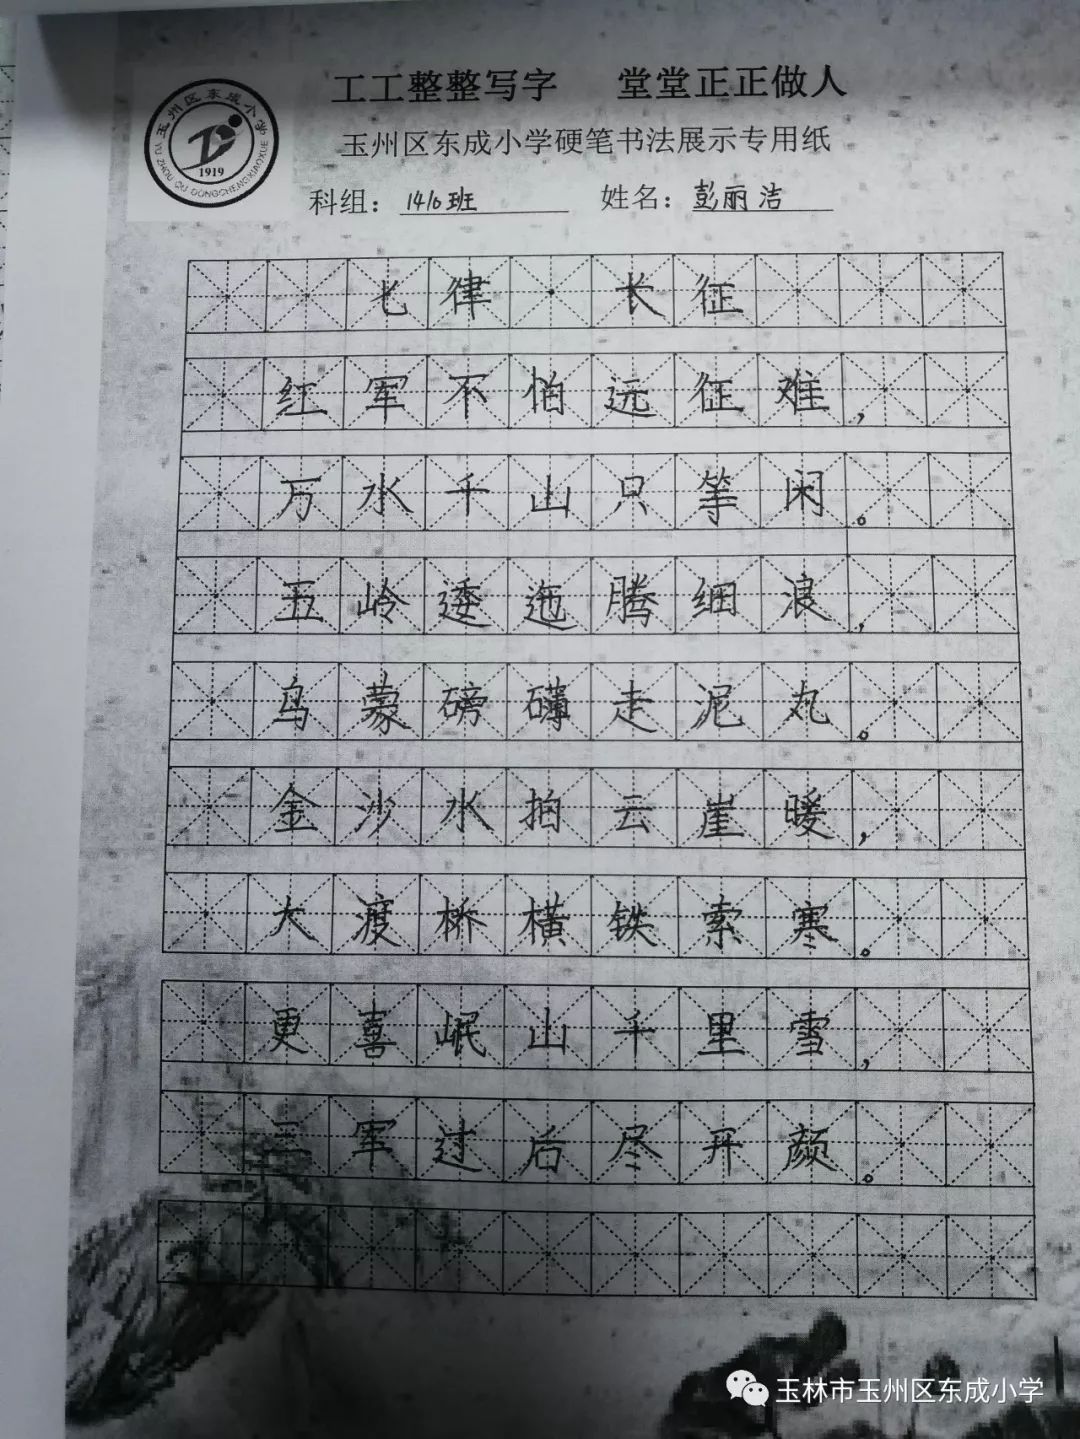 工工整整写字 堂堂正正做人
玉州区东成小学硬笔书法展示专用纸
玉州区东成小学
YU ZHOU QU DONGCHENG XIAOXUE
1919
科组：1410班 姓名：彭丽洁
七律·长征
红军不怕远征难，
万水千山只等闲。
五岭逶迤腾细浪，
乌蒙磅礴走泥丸。
金沙水拍云崖暖，
大渡桥横铁索寒。
更喜岷山千里雪，
三军过后尽开颜。
玉林市玉州区东成小学